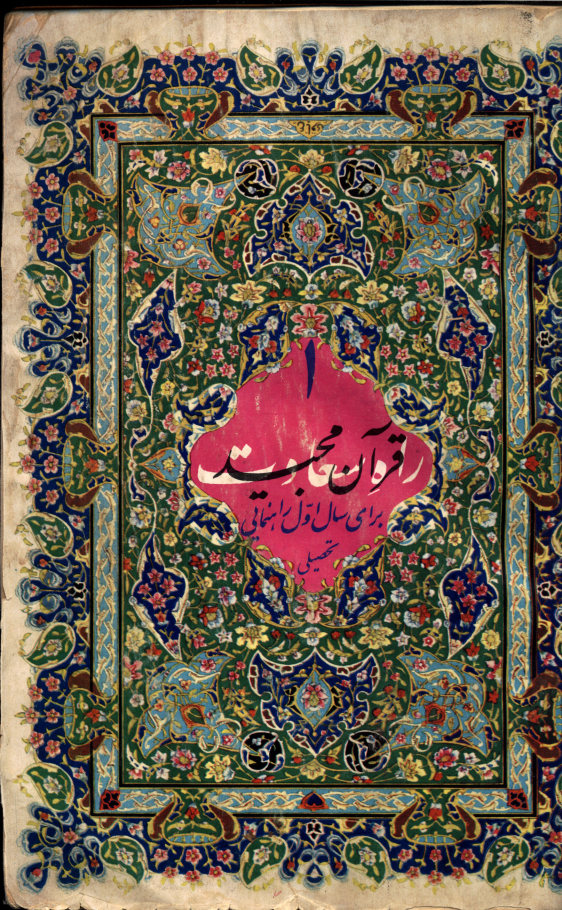 ۱
قرآن مجید
برای سال اوّل راهنمایی
تحصیلی